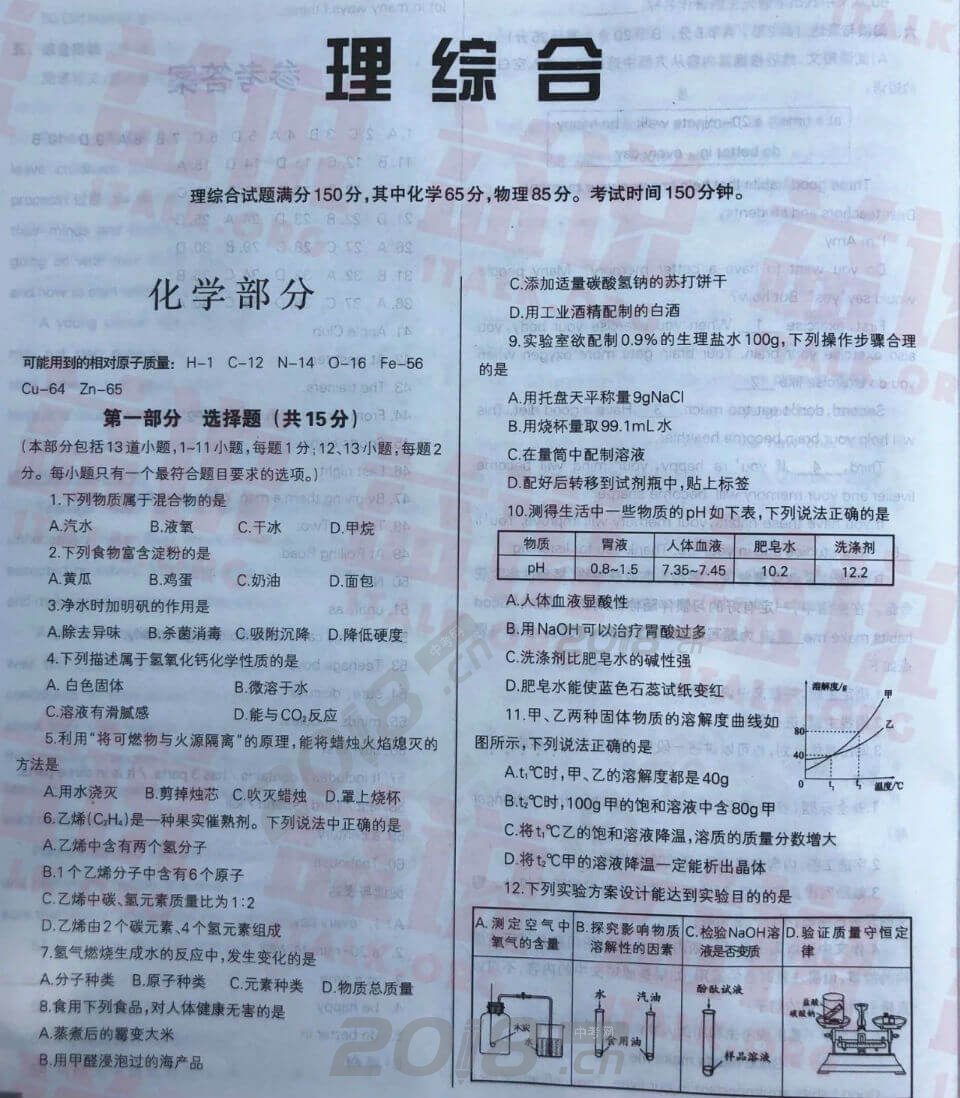 理综合
理综合试题满分150分,其中化学65分,物理85分。考试时间150分钟。
化学部分
可能用到的相对原子质量: H-1 C-12 N-14 O-16 Fe-56
Cu-64 Zn-65
第一部分 选择题(共15分)
(本部分包括13道小题,1~11小题,每题1分;12、13小题,每题2
分。每小题只有一个最符合题目要求的选项。)
1.下列物质属于混合物的是
A.汽水 B.液氧 C.干冰 D.甲烷
2.下列食物富含淀粉的是
A.黄瓜 B.鸡蛋 C.奶油 D.面包
3.净水时加明矾的作用是
A.除去异味 B.杀菌消毒 C.吸附沉降 D.降低硬度
4.下列描述属于氢氧化钙化学性质的是
A.白色固体 B.微溶于水
C.溶液有滑腻感 D.能与CO₂反应
5.利用“将可燃物与火源隔离”的原理,能将蜡烛火焰熄灭的
方法是
A.用水浇灭 B.剪掉烛芯 C.吹灭蜡烛 D.罩上烧杯
6.乙烯(C₂H₄)是一种果实催熟剂。下列说法中正确的是
A.乙烯中含有两个氢分子
B.1个乙烯分子中含有6个原子
C.乙烯中碳、氢元素质量比为1:2
D.乙烯由2个碳元素、4个氢元素组成
7.氢气燃烧生成水的反应中,发生变化的是
A.分子种类 B.原子种类 C.元素种类 D.物质总质量
8.食用下列食品,对人体健康无害的是
A.蒸煮后的霉变大米
B.用甲醛浸泡过的海产品
C.添加适量碳酸氢钠的苏打饼干
D.用工业酒精配制的白酒
9.实验室欲配制0.9%的生理盐水100g,下列操作步骤合理
的是
A.用托盘天平称量9gNaCl
B.用烧杯量取99.1mL水
C.在量筒中配制溶液
D.配好后转移到试剂瓶中,贴上标签
10.测得生活中一些物质的pH如下表,下列说法正确的是
物质 胃液 人体血液 肥皂水 洗涤剂
pH 0.8~1.5 7.35~7.45 10.2 12.2
A.人体血液显酸性
B.用NaOH可以治疗胃酸过多
C.洗涤剂比肥皂水的碱性强
D.肥皂水能使蓝色石蕊试纸变红
11.甲、乙两种固体物质的溶解度曲线如
图所示,下列说法正确的是
溶解度/g
甲
乙
80
40
0 t₁ t₂ 温度/℃
A.t₁℃时,甲、乙的溶解度都是40g
B.t₂℃时,100g甲的饱和溶液中含80g甲
C.将t₁℃乙的饱和溶液降温,溶质的质量分数增大
D.将t₂℃甲的溶液降温一定能析出晶体
12.下列实验方案设计能达到实验目的的是
A.测定空气中 B.探究影响物质 C.检验NaOH溶 D.验证质量守恒定
氧气的含量 溶解性的因素 液是否变质 律
木炭
水
水 汽油
食用油
酚酞试液
样品溶液
盐酸
碳酸钠
2018中考网.cn
2018中考网.cn